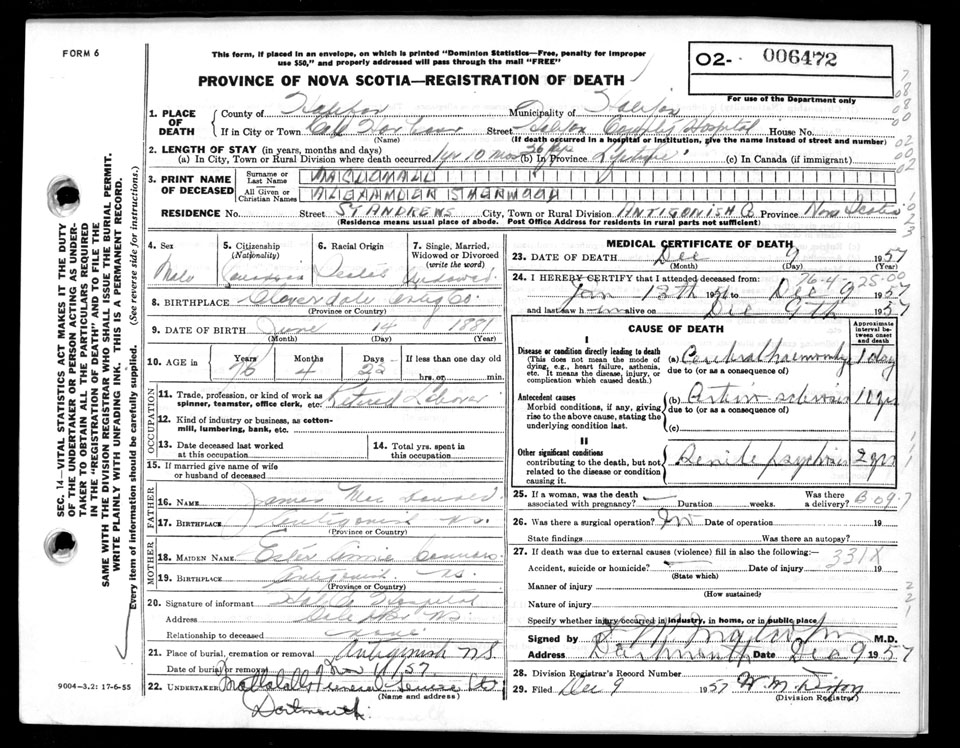 FORM 6
This form, if placed in an envelope, on which is printed "Dominion Statistics—Free, penalty for improper
use $50," and properly addressed will pass through the mail "FREE"
PROVINCE OF NOVA SCOTIA—REGISTRATION OF DEATH
O2- 006472
For use of the Department only
1. PLACE OF DEATH
County of Halifax Municipality of Halifax
If in City or Town Cole Harbour Street Halifax County Hospital House No.
(Name) (If death occurred in a hospital or institution, give the name instead of street and number)
2. LENGTH OF STAY (in years, months and days)
(a) In City, Town or Rural Division where death occurred 1 yr 10 mos 26 (b) In Province Lifetime (c) In Canada (if immigrant)
3. PRINT NAME OF DECEASED
Surname or Last Name MACDONALD
All Given or Christian Names ALEXANDER SHERWOOD
RESIDENCE No. Street ST ANDREWS City, Town or Rural Division ANTIGONISH Co Province Nova Scotia
(Residence means usual place of abode. Post Office Address for residents in rural parts not sufficient)
4. Sex Male
5. Citizenship (Nationality) Canadian
6. Racial Origin Scotch
7. Single, Married, Widowed or Divorced (write the word) Widowed
8. BIRTHPLACE Cloverdale Antig Co.
(Province or Country)
9. DATE OF BIRTH June 14 1881
(Month) (Day) (Year)
10. AGE in Years 76 Months 4 Days 22 If less than one day old
hrs. or min.
OCCUPATION
11. Trade, profession, or kind of work as spinner, teamster, office clerk, etc. Retired Laborer
12. Kind of industry or business, as cotton-mill, lumbering, bank, etc.
13. Date deceased last worked at this occupation
14. Total yrs. spent in this occupation
15. If married give name of wife or husband of deceased
FATHER
16. NAME James MacDonald
17. BIRTHPLACE Antigonish N.S.
(Province or Country)
MOTHER
18. MAIDEN NAME Annie
19. BIRTHPLACE Antigonish N.S.
(Province or Country)
20. Signature of informant Hospital
Address N.S.
Relationship to deceased none
21. Place of burial, cremation or removal Antigonish N.S.
Date of burial or removal 11/57
22. UNDERTAKER Funeral Service Ltd
(Name and address)
Dartmouth.
9004-3.2: 17-6-55
MEDICAL CERTIFICATE OF DEATH
23. DATE OF DEATH Dec 9 1957
(Month) (Day) (Year)
24. I HEREBY CERTIFY that I attended deceased from:
Jan 13th 1956 to Dec 9 1957
and last saw h im alive on Dec 9th 1957
CAUSE OF DEATH
Approximate interval between onset and death
I
Disease or condition directly leading to death
(This does not mean the mode of dying, e.g., heart failure, asthenia, etc. It means the disease, injury, or complication which caused death.)
(a) Cerebral haemorrhage 1 day
due to (or as a consequence of)
Antecedent causes
Morbid conditions, if any, giving rise to the above cause, stating the underlying condition last.
(b) Arterio sclerosis 10 yrs
due to (or as a consequence of)
(c)
II
Other significant conditions
contributing to the death, but not related to the disease or condition causing it.
Senile psychosis 2 yrs
25. If a woman, was the death associated with pregnancy? Duration weeks. Was there a delivery?
B 09.7
26. Was there a surgical operation? No Date of operation 19
State findings Was there an autopsy?
27. If death was due to external causes (violence) fill in also the following:— 331X
Accident, suicide or homicide? Date of injury 19
(State which)
Manner of injury
(How sustained)
Nature of injury
Specify whether injury occurred in industry, in home, or in public place
Signed by M.D.
Address Dartmouth Date Dec 9 1957
28. Division Registrar's Record No.
29. Filed Dec 9 1957 W. M. Dixon
(Division Registrar)
SEC. 14—VITAL STATISTICS ACT MAKES IT THE DUTY
OF THE UNDERTAKER OR PERSON ACTING AS UNDER-
TAKER TO OBTAIN ALL THE PARTICULARS REQUIRED
IN THE "REGISTRATION OF DEATH" AND TO FILE THE
SAME WITH THE DIVISION REGISTRAR WHO SHALL ISSUE THE BURIAL PERMIT.
WRITE PLAINLY WITH UNFADING INK. THIS IS A PERMANENT RECORD.
Every item of information should be carefully supplied. (See reverse side for instructions.)